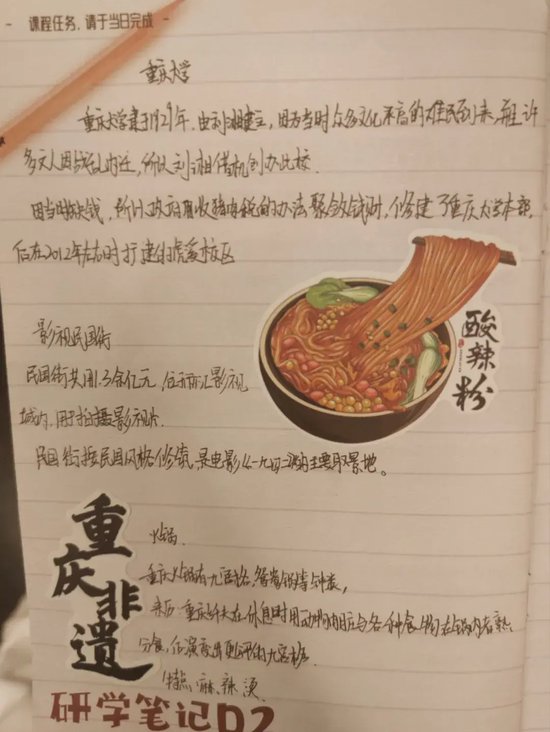 课程任务，请于当日完成
重庆大学
重庆大学建于1929年，由刘湘建立，因为当时众多文化不高的难民到来，且许
多文人因战乱内迁，所以刘湘借机创办此校.
因当时缺钱，所以政府用收猪肉税的办法聚敛钱财，修建了重庆大学本部，
后在2012年左右时打建的虎溪校区
酸辣粉
影视民国街
民国街共用1.3余亿元，位于两江影视
城内，用于拍摄影视片.
民国街按民国风格修筑，是电影《一九四二》的主要取景地。
重庆非遗
火锅.
重庆火锅有九宫格，鸳鸯锅等种类，
来历：重庆纤夫在休息时用动物内脏与各种食物在锅内煮熟
分食，后演变出更的九宫格.
特点：麻、辣、烫.
研学笔记D2